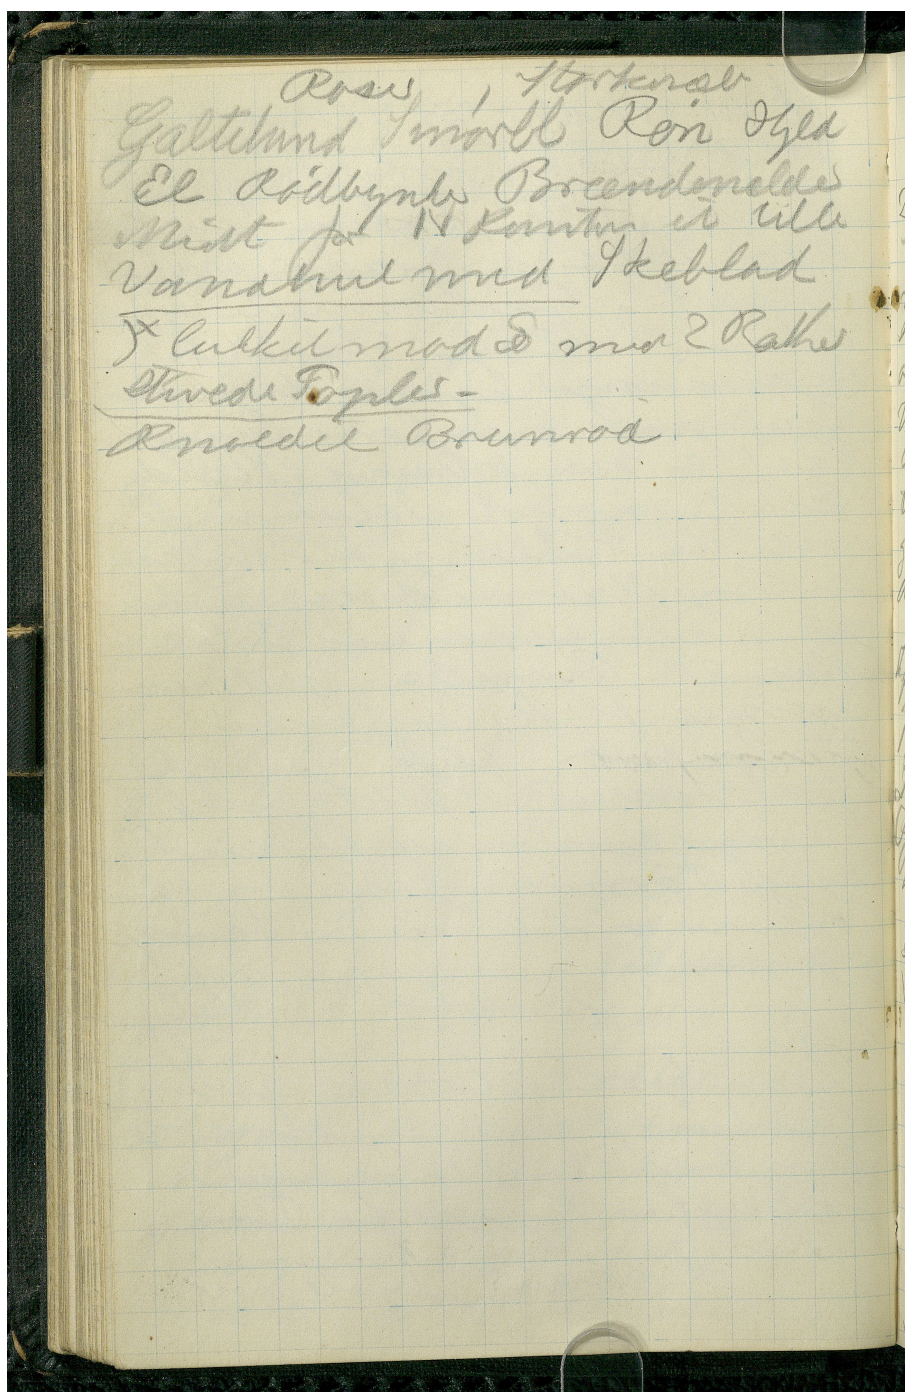 Roser , Storkenæb
Galtelund Smørbl Røn Hyld
El Rödbynke Brændenelder
Midt for N Kanten et lille
Vandhul med Skeblad
lukket mod S med 2 Rækker
stivede Popler -
Knoldet Brunrod